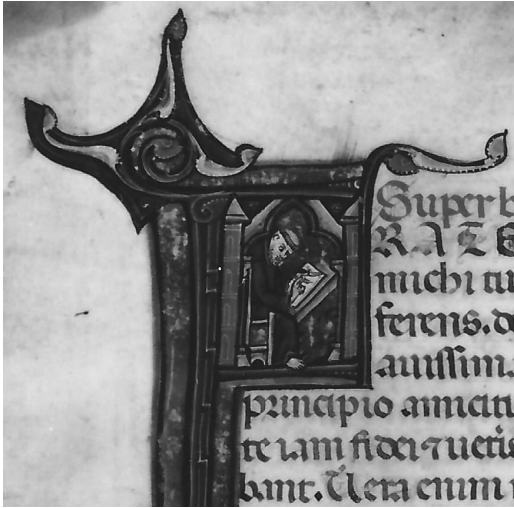 Super b
RATE
michi
ferens. de
auissima
principio amiciti
te iam fidei ⁊ uetis
bant. Uera enim